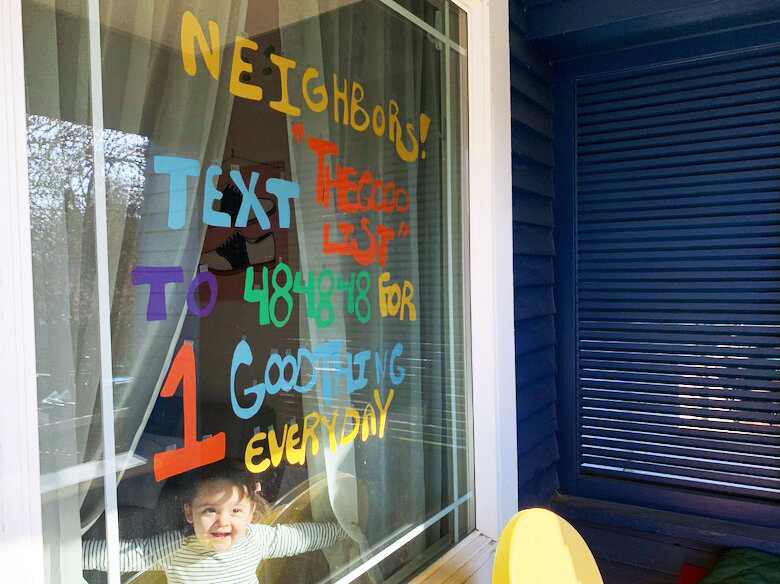 NEIGHBORS!
TEXT "THEGOOD
LIST"
TO 484848 FOR
1 GOOD THING
EVERYDAY